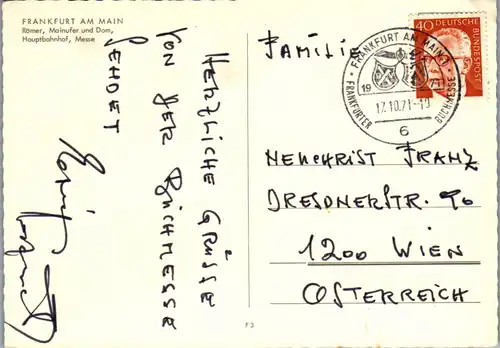 FRANKFURT AM MAIN
Römer, Mainufer und Dom,
Hauptbahnhof, Messe
HERZLICHE GRÜSSE
VON DER BUCHMESSE
SENDET
FAMILIE
NEUCHRIST FRANZ
DRESDNERSTR. 90
1200 WIEN
ÖSTERREICH
40 DEUTSCHE
BUNDESPOST
FRANKFURT AM MAIN 1
1971
12.10.71-19
FRANKFURTER BUCHMESSE
6
F 3